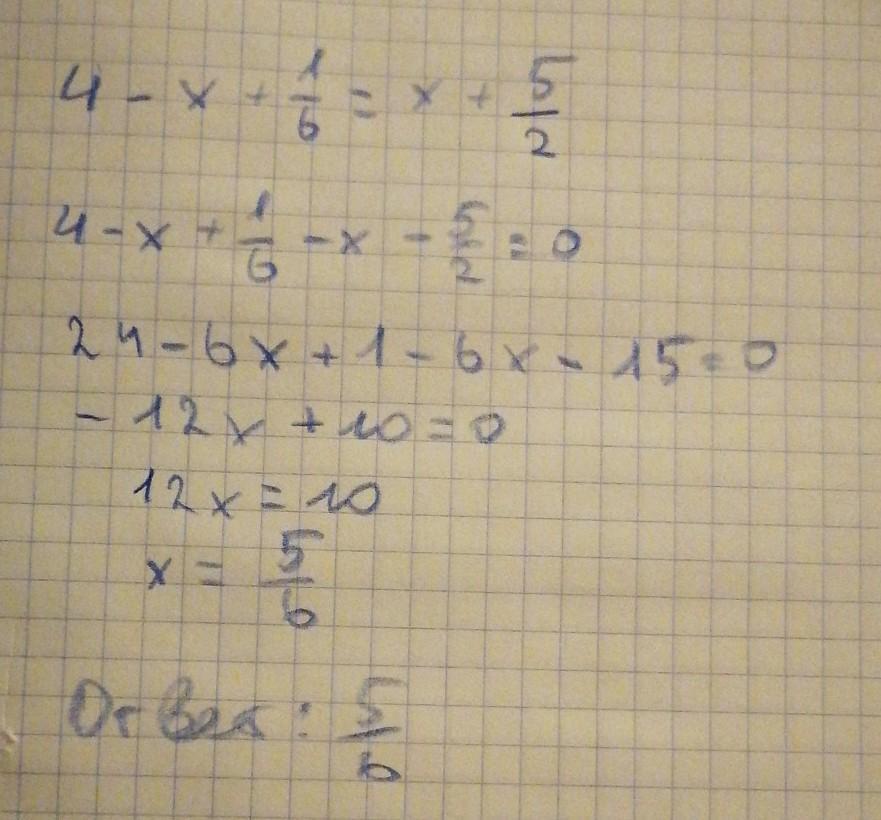 4 - x + 1/6 = x + 5/2
4 - x + 1/6 - x - 5/2 = 0
24 - 6x + 1 - 6x - 15 = 0
- 12x + 10 = 0
12x = 10
x = 5/6
Ответ: 5/6